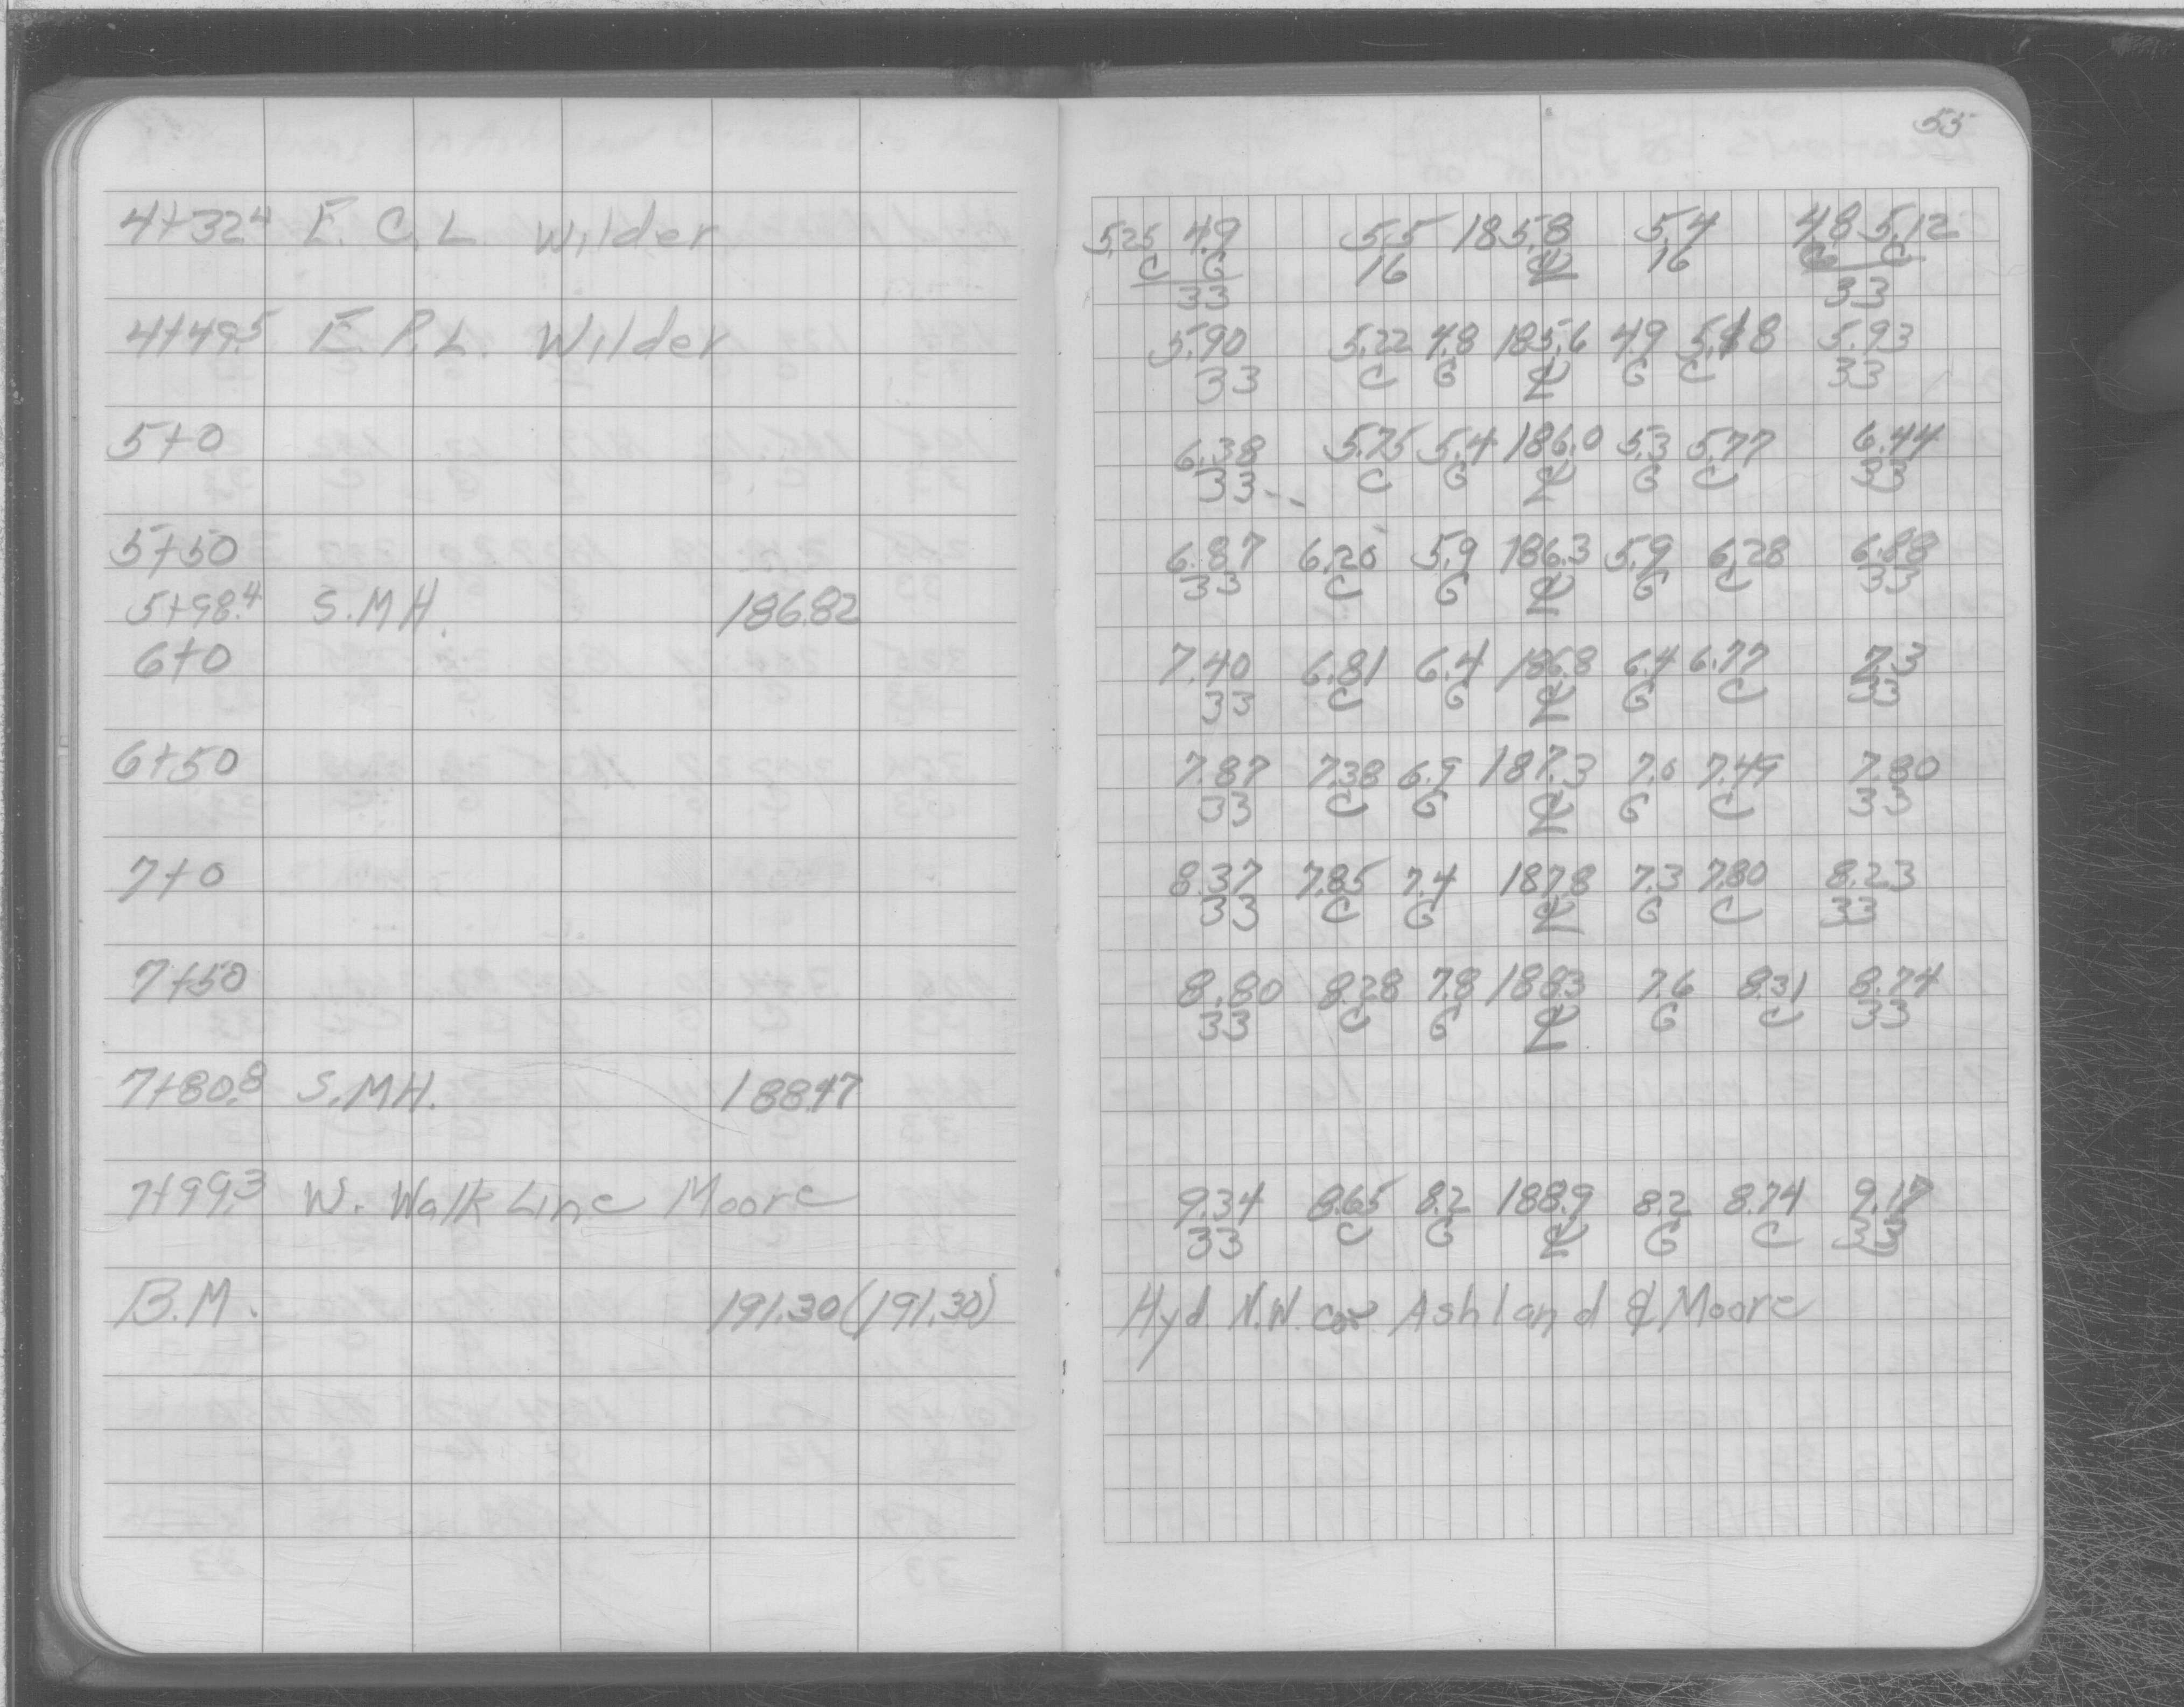 55
4+32.4 E. C.L. Wilder 5.25 4.9 5.5 185.8 5.4 4.8 5.12
C G 16 ℄ 16 G C
33 33
4+49.5 E. P.L. Wilder 5.90 5.22 4.8 185.6 4.9 5.18 5.93
33 C G ℄ G C 33
5+0 6.38 5.75 5.4 186.0 5.3 5.77 6.44
33 C G ℄ G C 33
5+50 6.87 6.20 5.9 186.3 5.9 6.28 6.88
33 C G ℄ G C 33
5+98.4 S.M.H. 186.82
6+0 7.40 6.81 6.4 186.8 6.4 6.77 7.3
33 C G ℄ G C 33
6+50 7.87 7.38 6.9 187.3 7.0 7.49 7.80
33 C G ℄ G C 33
7+0 8.37 7.85 7.4 187.8 7.3 7.80 8.23
33 C G ℄ G C 33
7+50 8.80 8.28 7.8 188.3 7.6 8.31 8.74
33 C G ℄ G C 33
7+80.8 S.M.H. 188.47
7+99.3 W. Walk Line Moore 9.34 8.65 8.2 188.9 8.2 8.74 9.17
33 C G ℄ G C 33
B.M. 191.30 (191.30) Hyd N.W. cor Ashland & Moore